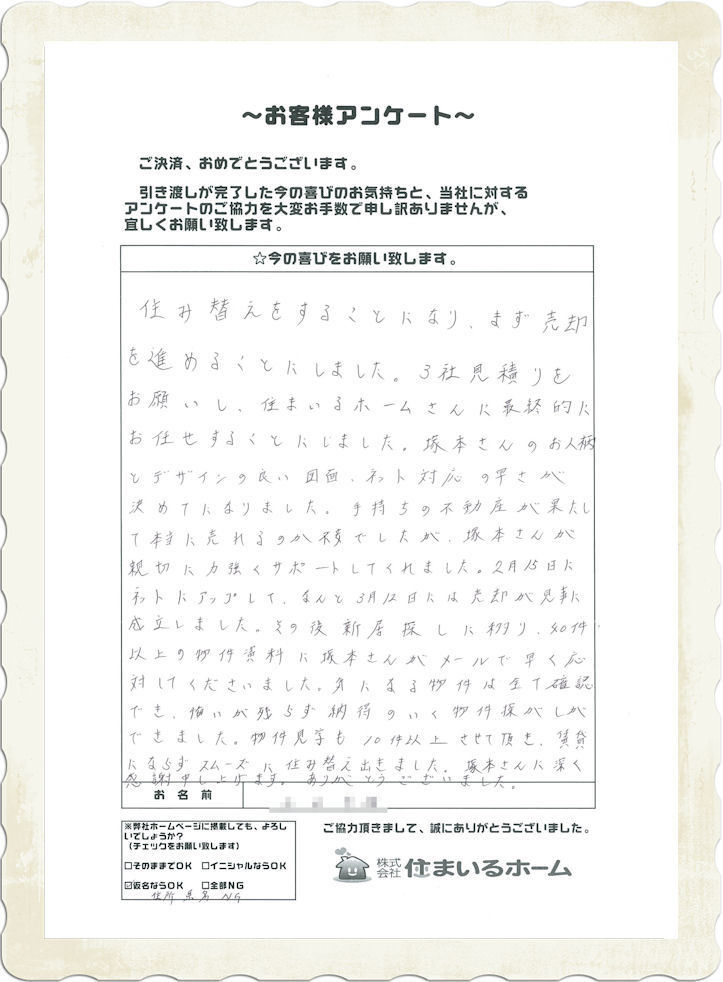 ～お客様アンケート～
ご決済、おめでとうございます。
引き渡しが完了した今の喜びのお気持ちと、当社に対する
アンケートのご協力を大変お手数で申し訳ありませんが、
宜しくお願い致します。
☆今の喜びをお願い致します。
住み替えをすることになり、まず売却
を進めることにしました。3社見積りを
お願いし、住まいるホームさんに最終的に
お任せすることにしました。塚本さんのお人柄
とデザインの良い図面、ネット対応の早さが
決めてになりました。手持ちの不動産が果たし
て本当に売れるのか不安でしたが、塚本さんが
親切に力強くサポートしてくれました。2月15日に
ネットにアップして、なんと3月12日には売却が見事に
成立しました。その後新居探しに移り、40件
以上の物件資料に塚本さんがメールで早く応
対してくださいました。気になる物件は全て確認
でき、悔いが残らず納得のいく物件探がしが
できました。物件見学も10件以上させて頂き、賃貸
にならずスムーズに住み替え出きました。塚本さんに深く
感謝申し上げます。ありがとうございました。
お名前
※弊社ホームページに掲載しても、よろし
いでしょうか？
（チェックをお願い致します）
□そのままでOK □イニシャルならOK
☑仮名ならOK □全部NG
住所 県名 NG
ご協力頂きまして、誠にありがとうございました。
株式会社 住まいるホーム